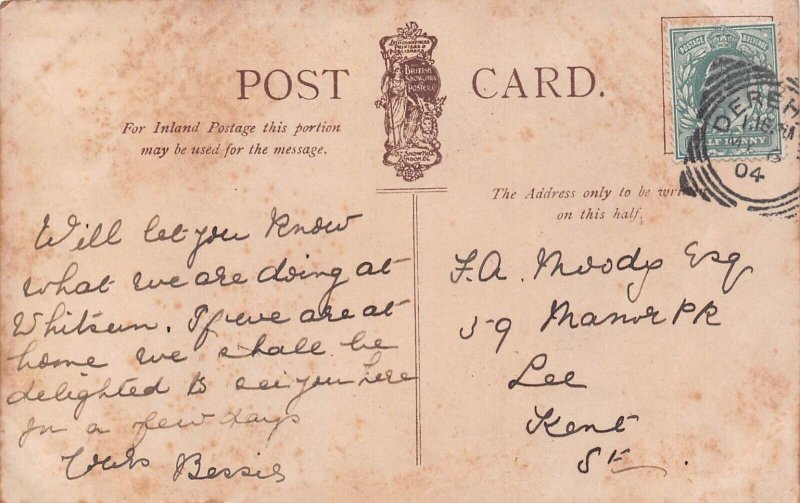 POST CARD.
LITHOGRAPHERS
PRINTERS &
PUBLISHERS
BRITISH
SHOWCARD
& POSTER Co
SNOW HILL
LONDON. E.C.
For Inland Postage this portion
may be used for the message.
The Address only to be written
on this half.
POSTAGE & REVENUE
HALF PENNY
DEREH
04
Will let you know
what we are doing at
Whitsun. If we are at
home we shall be
delighted to see you here
for a few days
Yours Bessie
F.A. Moody Esq
59 Manor PK
Lee
Kent
SE